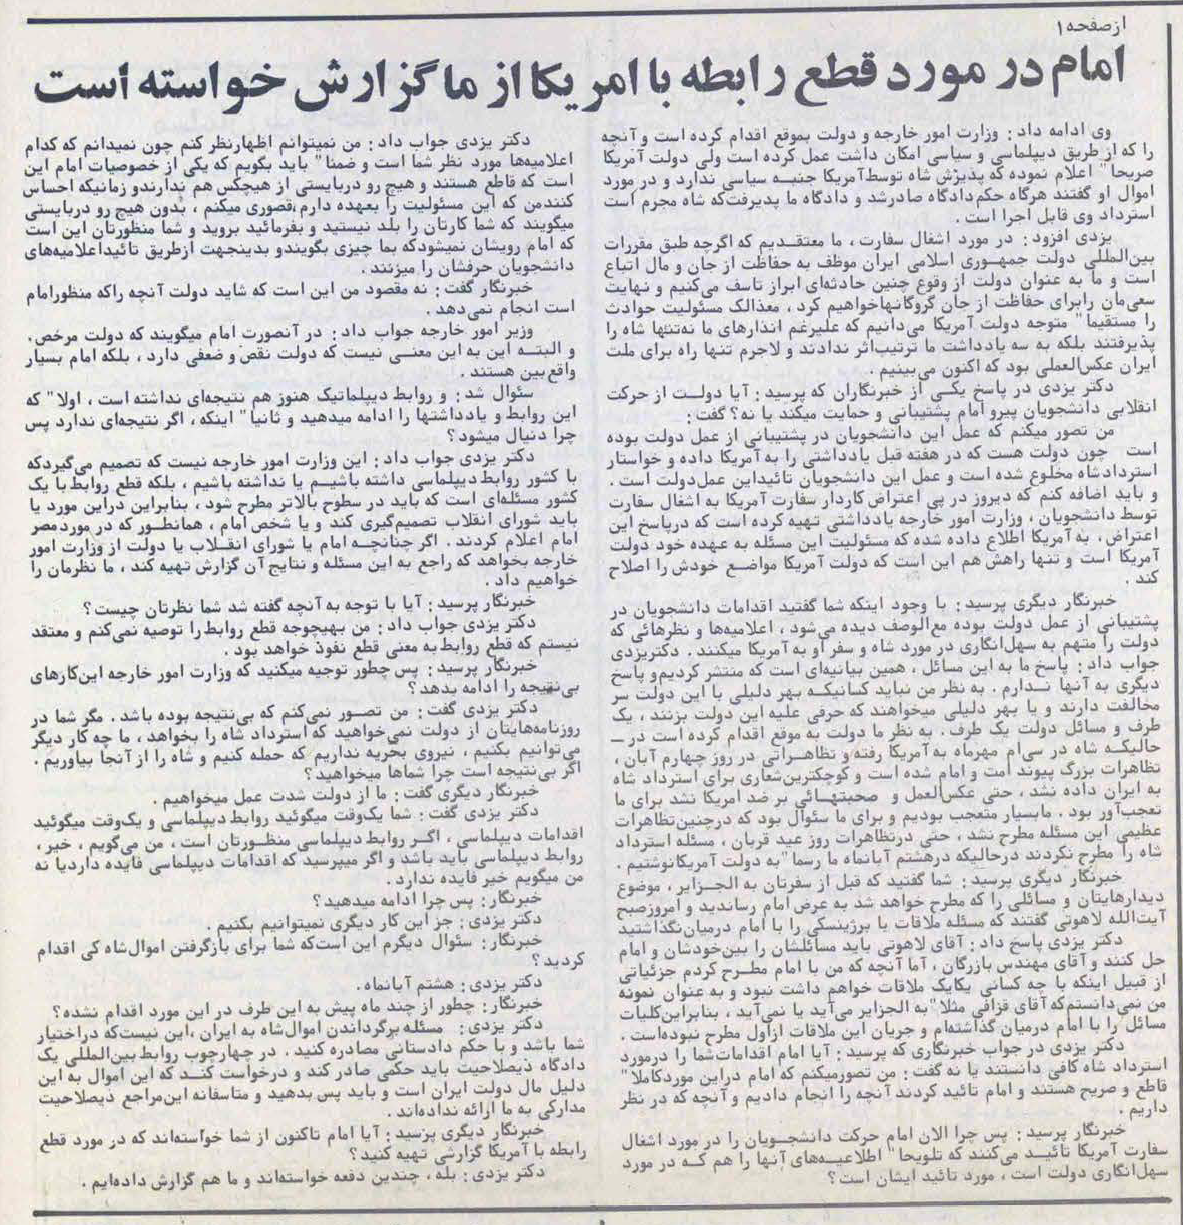 از صفحه ۱
امام در مورد قطع رابطه با امریکا از ما گزارش خواسته است
وی ادامه داد: وزارت امور خارجه و دولت بموقع اقدام کرده است و آنچه
را که از طریق دیپلماسی و سیاسی امکان داشت عمل کرده است ولی دولت آمریکا
صریحا" اعلام نموده که پذیرش شاه توسط آمریکا جنبه سیاسی ندارد و در مورد
اموال او گفتند هرگاه حکم دادگاه صادر شد و دادگاه ما پذیرفت که شاه مجرم است
استرداد وی قابل اجرا است .
یزدی افزود: در مورد اشغال سفارت ، ما معتقدیم که اگرچه طبق مقررات
بین‌المللی دولت جمهوری اسلامی ایران موظف به حفاظت از جان و مال اتباع
است و ما به عنوان دولت از وقوع چنین حادثه‌ای ابراز تاسف می‌کنیم و نهایت
سعی‌مان را برای حفاظت از جان گروگانها خواهیم کرد ، معذالک مسئولیت حوادث
را مستقیما" متوجه دولت آمریکا می‌دانیم که علیرغم انذارهای ما نه‌تنها شاه را
پذیرفتند بلکه به سه یادداشت ما ترتیب‌اثر ندادند و لاجرم تنها راه برای ملت
ایران عکس‌العملی بود که اکنون می‌بینیم .
دکتر یزدی در پاسخ یکی از خبرنگاران که پرسید: آیا دولت از حرکت
انقلابی دانشجویان پیرو امام پشتیبانی و حمایت میکند یا نه؟ گفت :
من تصور میکنم که عمل این دانشجویان در پشتیبانی از عمل دولت بوده
است چون دولت هست که در هفته قبل یادداشتی را به آمریکا داده و خواستار
استرداد شاه مخلوع شده است و عمل این دانشجویان تائید این عمل دولت است .
و باید اضافه کنم که دیروز در پی اعتراض کاردار سفارت آمریکا به اشغال سفارت
توسط دانشجویان ، وزارت امور خارجه یادداشتی تهیه کرده است که در پاسخ این
اعتراض ، به آمریکا اطلاع داده شده که مسئولیت این مسئله به عهده خود دولت
آمریکا است و تنها راهش هم این است که دولت آمریکا مواضع خودش را اصلاح
کند .
خبرنگار دیگری پرسید: با وجود اینکه شما گفتید اقدامات دانشجویان در
پشتیبانی از عمل دولت بوده مع‌الوصف دیده می‌شود ، اعلامیه‌ها و نظرهائی که
دولت را متهم به سهل‌انگاری در مورد شاه و سفر او به آمریکا میکنند . دکتر یزدی
جواب داد: پاسخ ما به این مسائل ، همین بیانیه‌ای است که منتشر کردیم و پاسخ
دیگری به آنها نداریم . به نظر من نباید کسانیکه بهر دلیلی با این دولت سر
مخالفت دارند و یا بهر دلیلی میخواهند که حرفی علیه این دولت بزنند ، یک
طرف و مسائل دولت یک طرف . به نظر ما دولت به موقع اقدام کرده است در ـ
حالیکه شاه در سی‌ام مهرماه به آمریکا رفته و تظاهراتی در روز چهارم آبان ،
تظاهرات بزرگ پیوند امت و امام شده است و کوچکترین شعاری برای استرداد شاه
به ایران داده نشد ، حتی عکس‌العمل و صحبتهائی بر ضد امریکا نشد برای ما
تعجب‌آور بود . ما بسیار متعجب بودیم و برای ما سئوال بود که در چنین تظاهرات
عظیمی این مسئله مطرح نشد ، حتی در تظاهرات روز عید قربان ، مسئله استرداد
شاه را مطرح نکردند در حالیکه در هشتم آبانماه ما رسما" به دولت آمریکا نوشتیم .
خبرنگار دیگری پرسید: شما گفتید که قبل از سفرتان به الجزایر ، موضوع
دیدارهایتان و مسائلی را که مطرح خواهد شد به عرض امام رساندید و امروز صبح
آیت‌الله لاهوتی گفتند که مسئله ملاقات با برژینسکی را با امام در میان نگذاشتید
دکتر یزدی پاسخ داد: آقای لاهوتی باید مسائلشان را بین خودشان و امام
حل کنند و آقای مهندس بازرگان ، اما آنچه که من با امام مطرح کردم جزئیاتی
از قبیل اینکه با چه کسانی یکایک ملاقات خواهم داشت نبود و به عنوان نمونه
من نمی‌دانستم که آقای قزافی مثلا" به الجزایر می‌آید یا نمی‌آید ، بنابراین کلیات
مسائل را با امام درمیان گذاشته‌ام و جریان این ملاقات از اول مطرح نبوده‌است .
دکتر یزدی در جواب خبرنگاری که پرسید: آیا امام اقدامات شما را در مورد
استرداد شاه کافی دانستند یا نه گفت: من تصور میکنم که امام در این مورد کاملا"
قاطع و صریح هستند و امام تائید کردند آنچه را انجام دادیم و آنچه که در نظر
داریم .
خبرنگار پرسید: پس چرا الان امام حرکت دانشجویان را در مورد اشغال
سفارت آمریکا تائید می‌کنند که تلویحا" اطلاعیه‌های آنها را هم که در مورد
سهل‌انگاری دولت است ، مورد تائید ایشان است؟
دکتر یزدی جواب داد: من نمیتوانم اظهارنظر کنم چون نمیدانم که کدام
اعلامیه‌ها مورد نظر شما است و ضمنا" باید بگویم که یکی از خصوصیات امام این
است که قاطع هستند و هیچ رو دربایستی از هیچکس هم ندارند و زمانیکه احساس
کنند من که این مسئولیت را بعهده دارم قصوری میکنم ، بدون هیچ رو دربایستی
میگویند که شما کارتان را بلد نیستید و بفرمائید بروید و شما منظورتان این است
که امام رویشان نمیشود که بما چیزی بگویند و بدینجهت از طریق تائید اعلامیه‌های
دانشجویان حرفشان را میزنند .
خبرنگار گفت: نه مقصود من این است که شاید دولت آنچه را که منظور امام
است انجام نمی‌دهد .
وزیر امور خارجه جواب داد: در آنصورت امام میگویند که دولت مرخص .
و البته این به این معنی نیست که دولت نقص و ضعفی دارد ، بلکه امام بسیار
واقع‌بین هستند .
سئوال شد: و روابط دیپلماتیک هنوز هم نتیجه‌ای نداشته است ، اولا" که
این روابط و یادداشتها را ادامه میدهید و ثانیا" اینکه ، اگر نتیجه‌ای ندارد پس
چرا دنبال میشود؟
دکتر یزدی جواب داد: این وزارت امور خارجه نیست که تصمیم می‌گیرد که
با کشور روابط دیپلماسی داشته باشیم یا نداشته باشیم ، بلکه قطع روابط با یک
کشور مسئله‌ای است که باید در سطوح بالاتر مطرح شود ، بنابراین دراین مورد یا
باید شورای انقلاب تصمیم‌گیری کند و یا شخص امام ، همانطور که در مورد مصر
امام اعلام کردند . اگر چنانچه امام یا شورای انقلاب یا دولت از وزارت امور
خارجه بخواهد که راجع به این مسئله و نتایج آن گزارش تهیه کند ، ما نظرمان را
خواهیم داد .
خبرنگار پرسید: آیا با توجه به آنچه گفته شد شما نظرتان چیست؟
دکتر یزدی جواب داد: من بهیچوجه قطع روابط را توصیه نمی‌کنم و معتقد
نیستم که قطع روابط به معنی قطع نفوذ خواهد بود .
خبرنگار پرسید: پس چطور توجیه میکنید که وزارت امور خارجه این کارهای
بی‌نتیجه را ادامه بدهد؟
دکتر یزدی گفت: من تصور نمی‌کنم که بی‌نتیجه بوده باشد . مگر شما در
روزنامه‌هایتان از دولت نمی‌خواهید که استرداد شاه را بخواهد ، ما چه کار دیگر
می‌توانیم بکنیم ، نیروی بحریه نداریم که حمله کنیم و شاه را از آنجا بیاوریم .
اگر بی‌نتیجه است چرا شماها میخواهید؟
خبرنگار دیگری گفت: ما از دولت شدت عمل میخواهیم .
دکتر یزدی گفت: شما یک‌وقت میگوئید روابط دیپلماسی و یک‌وقت میگوئید
اقدامات دیپلماسی ، اگر روابط دیپلماسی منظورتان است ، من می‌گویم ، خیر ،
روابط دیپلماسی باید باشد و اگر میپرسید که اقدامات دیپلماسی فایده دارد یا نه
من میگویم خیر فایده ندارد .
خبرنگار: پس چرا ادامه میدهید؟
دکتر یزدی: جز این کار دیگری نمیتوانیم بکنیم .
خبرنگار: سئوال دیگرم این است که شما برای بازگرفتن اموال شاه کی اقدام
کردید؟
دکتر یزدی: هشتم آبانماه .
خبرنگار: چطور از چند ماه پیش به این طرف در این مورد اقدام نشده؟
دکتر یزدی: مسئله برگرداندن اموال شاه به ایران ، این نیست که دراختیار
شما باشد و با حکم دادستانی مصادره کنید . در چهارچوب روابط بین‌المللی یک
دادگاه ذیصلاحیت باید حکمی صادر کند و درخواست کند که این اموال به این
دلیل مال دولت ایران است و باید پس بدهید و متاسفانه این مراجع ذیصلاحیت
مدارکی به ما ارائه نداده‌اند .
خبرنگار دیگری پرسید: آیا امام تاکنون از شما خواسته‌اند که در مورد قطع
رابطه با آمریکا گزارشی تهیه کنید؟
دکتر یزدی: بله ، چندین دفعه خواسته‌اند و ما هم گزارش داده‌ایم .